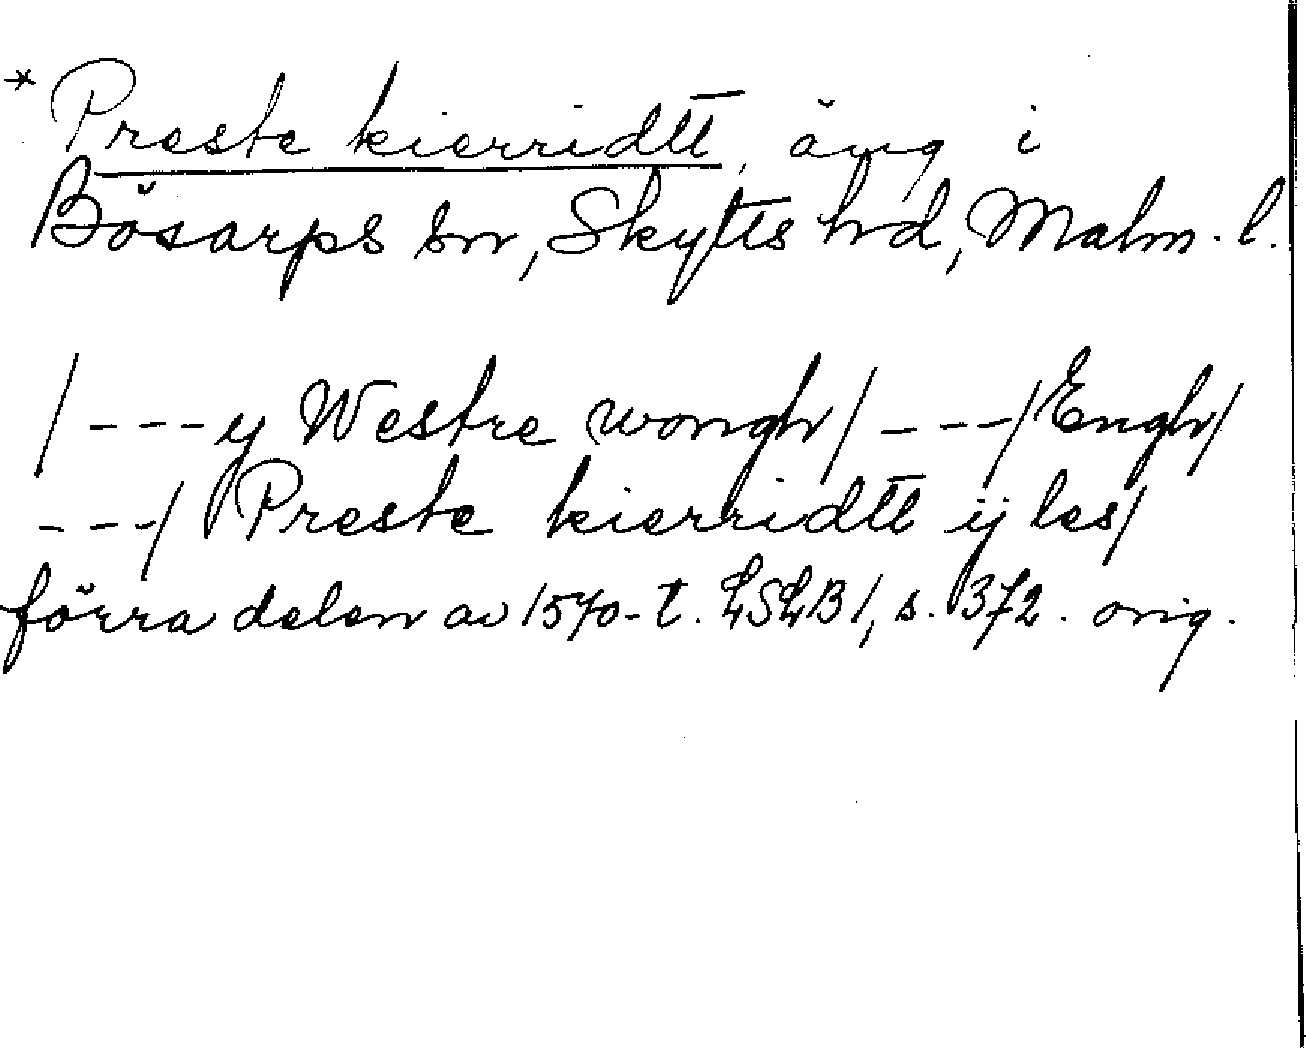 * Preste kierridtt, äng i
Bösarps sn, Skytts hd, Malm. l.
/---y Westre wongh/---/Engh/
---/ Preste kierridtt ij les/
förra delen av 1570-t. LSLB1, s. 372. orig.